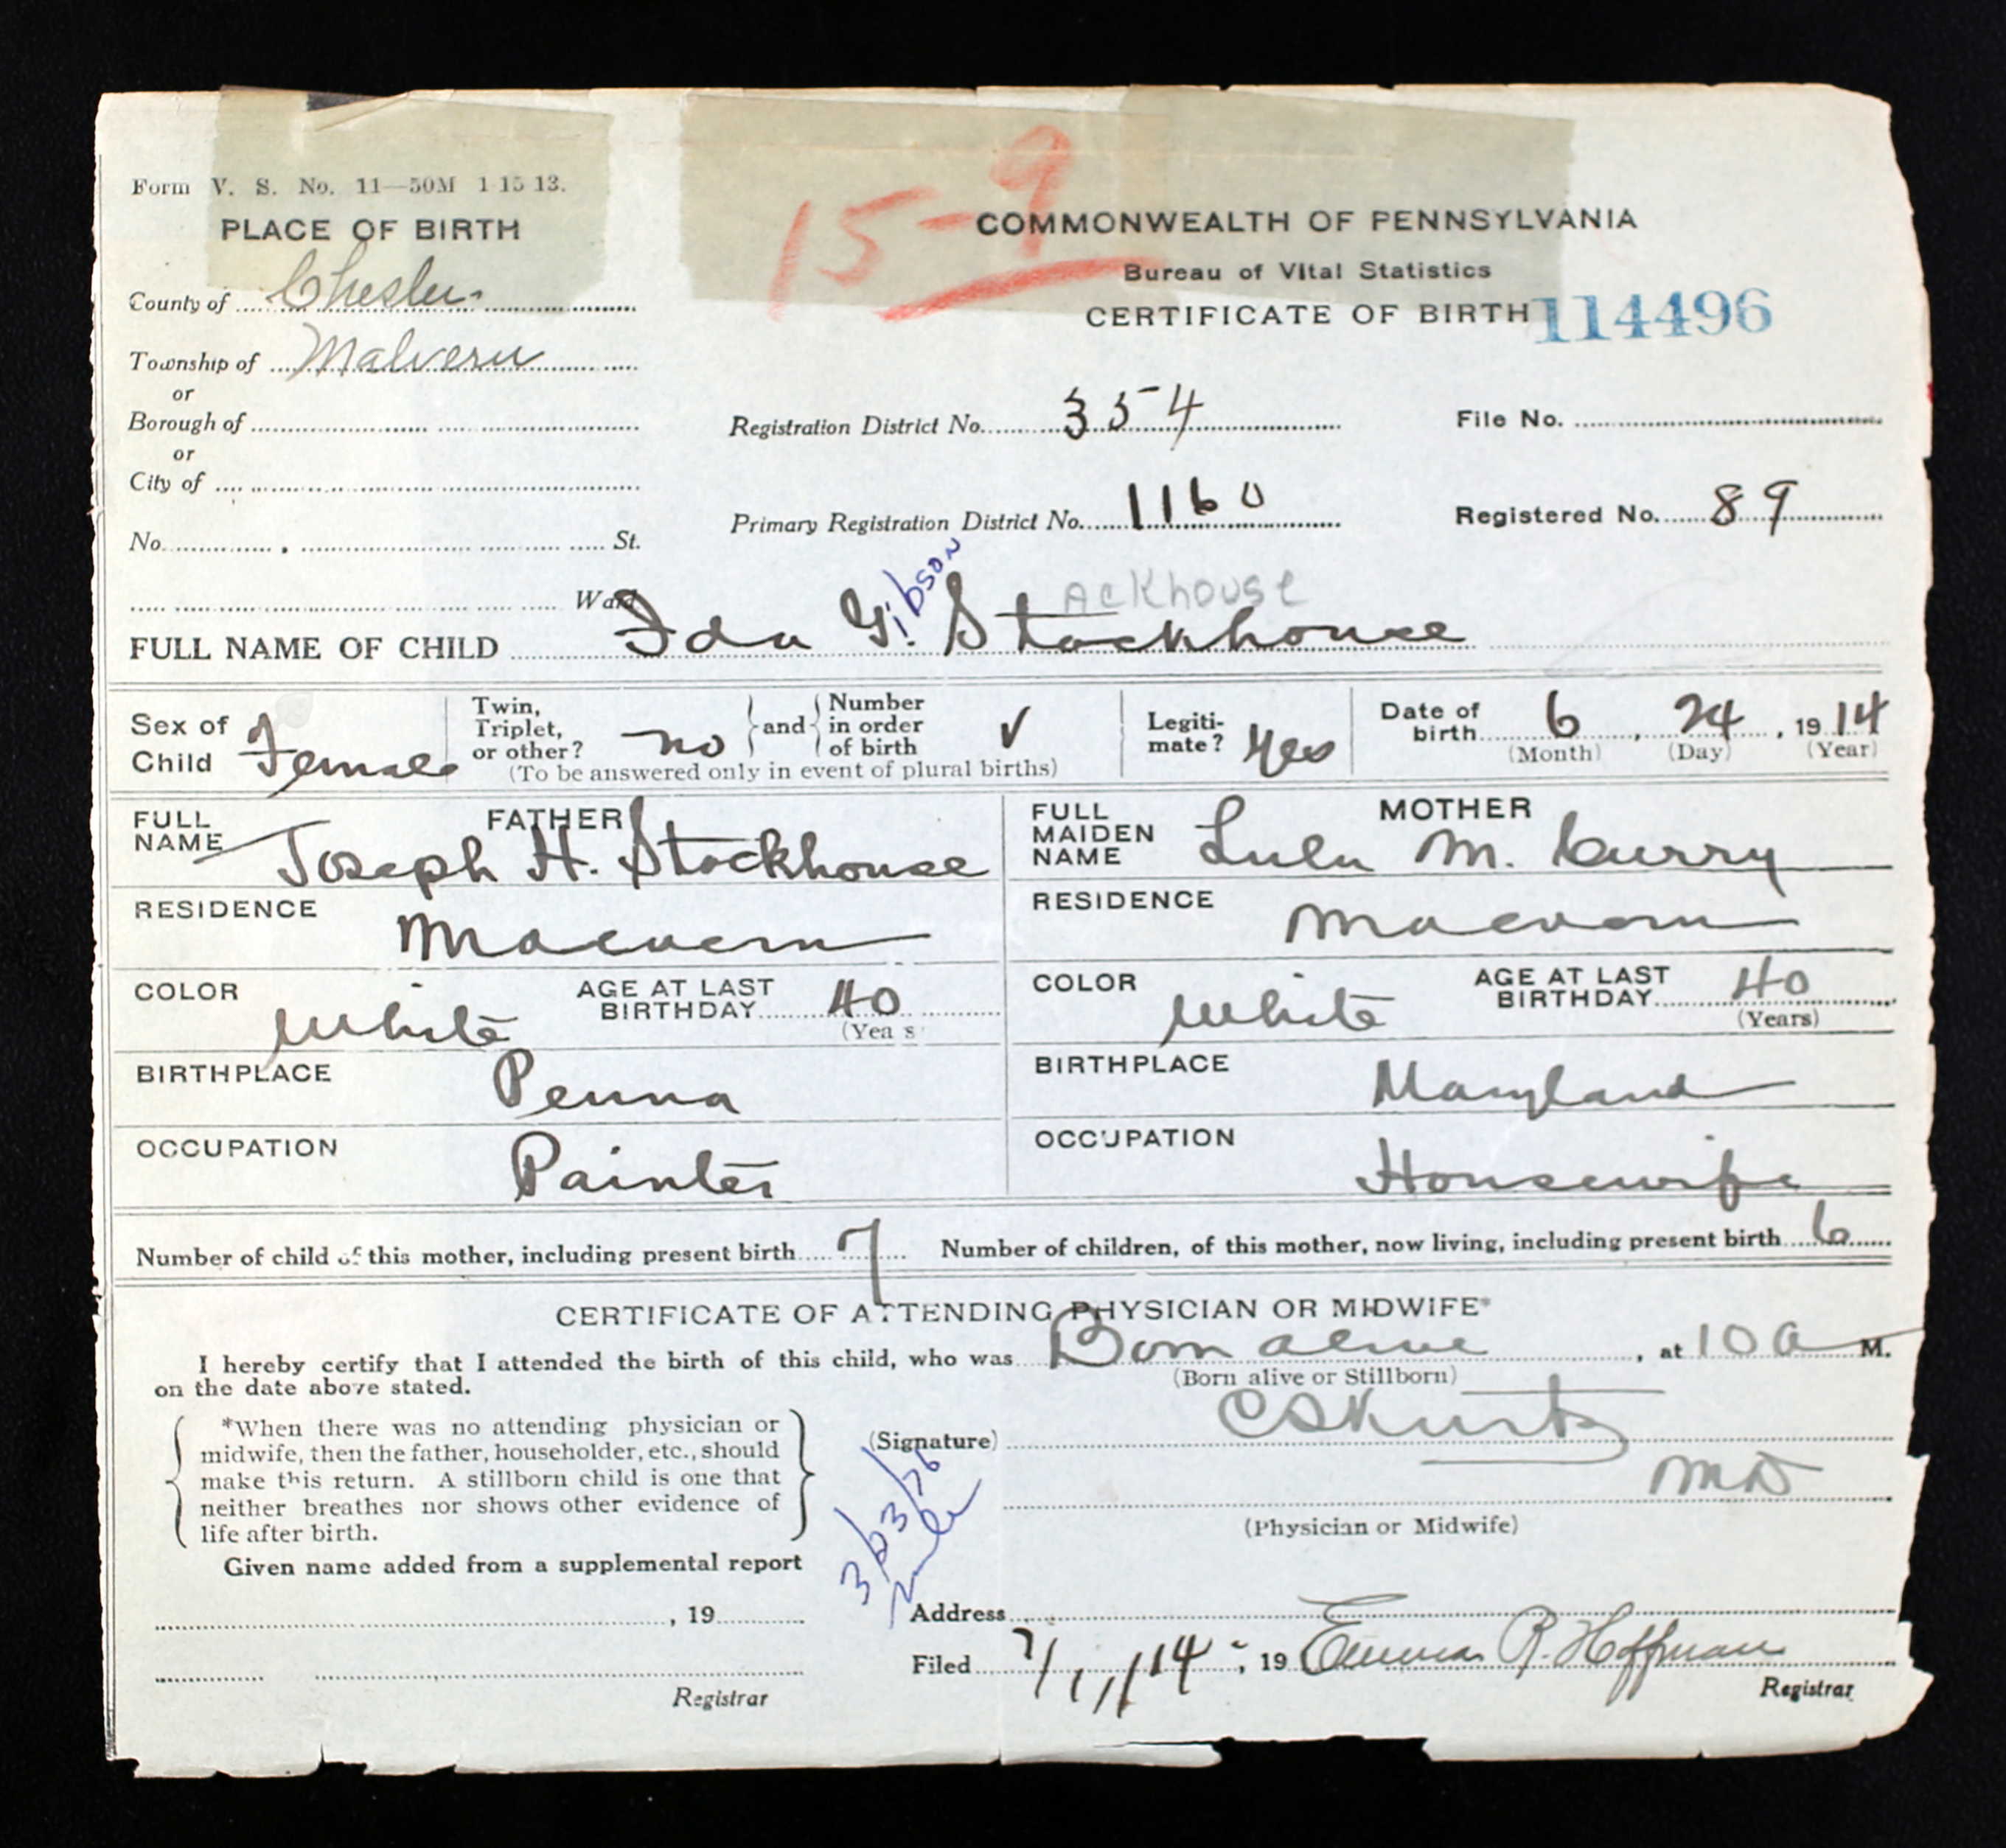 Form V. S. No. 11—50M 1 15 13.
PLACE OF BIRTH
County of Chester
Township of Malvern
or
Borough of
or
City of
No. , St.
Ward
15-9
COMMONWEALTH OF PENNSYLVANIA
Bureau of Vital Statistics
CERTIFICATE OF BIRTH 114496
Registration District No. 354
File No.
Primary Registration District No. 1160
Registered No. 89
Ackhouse
FULL NAME OF CHILD Ida Gibson Stackhouse
Sex of Child Female
Twin, Triplet, or other? no and Number in order of birth ✓
(To be answered only in event of plural births)
Legiti-mate? Yes
Date of birth 6, 24, 1914
(Month) (Day) (Year)
FATHER
FULL NAME Joseph H. Stackhouse
RESIDENCE Malvern
COLOR White
AGE AT LAST BIRTHDAY 40
(Yea s
BIRTHPLACE Penna
OCCUPATION Painter
MOTHER
FULL MAIDEN NAME Lulu M. Curry
RESIDENCE Malvern
COLOR White
AGE AT LAST BIRTHDAY 40
(Years)
BIRTHPLACE Maryland
OCCUPATION Housewife
Number of child of this mother, including present birth 7
Number of children, of this mother, now living, including present birth 6
CERTIFICATE OF ATTENDING PHYSICIAN OR MIDWIFE*
I hereby certify that I attended the birth of this child, who was Born alive, at 10 a M.
(Born alive or Stillborn)
on the date above stated.
*When there was no attending physician or
midwife, then the father, householder, etc., should
make this return. A stillborn child is one that
neither breathes nor shows other evidence of
life after birth.
(Signature) C S Kurtz
MD
(Physician or Midwife)
Given name added from a supplemental report
, 19
Registrar
Address
Filed 7/1/14, 19 Emma R. Hoffman
Registrar